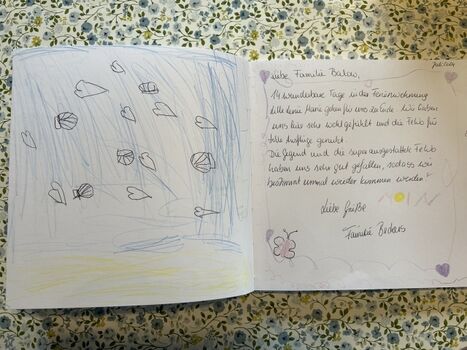 Liebe Familie Barlow,
14 wunderbare Tage in der Ferienwohnung
gehen für uns zu Ende. Wir haben
uns hier sehr wohl gefühlt und die FeWo für
tolle Ausflüge genutzt.
Die Gegend und die super ausgestattete FeWo
haben uns sehr gut gefallen, sodass wir
bestimmt nochmal wieder kommen werden!
Liebe Grüße
Familie